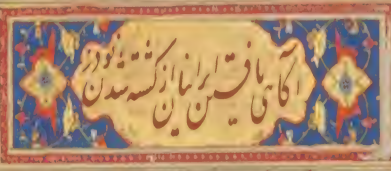 آگاهی یافتن ایرانیان از کشته شدن نوذر